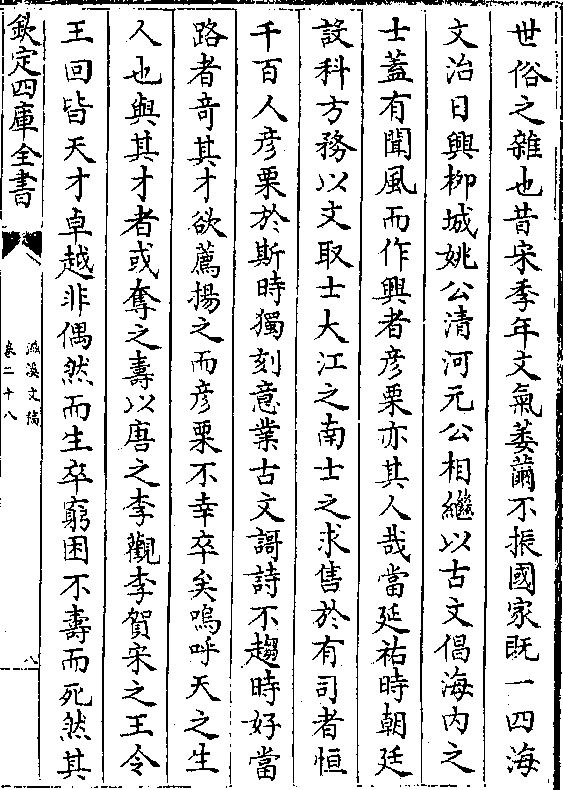 世俗之雜也昔宋季年文氣萎薾不振國家既一四海
文治日興柳城姚公清河元公相繼以古文倡海内之
士蓋有聞風而作興者彦栗亦其人哉當延祐時朝廷
設科方務以文取士大江之南士之求售於有司者恒
千百人彦栗於斯時獨刻意業古文謌詩不趨時好當
路者竒其才欲薦揚之而彦栗不幸卒矣嗚呼天之生
人也與其才者或奪之壽以唐之李觀李賀宋之王令
王回皆天才卓越非偶然而生卒窮困不壽而死然其
欽定四庫全書
滋溪文稿
卷二十八
八